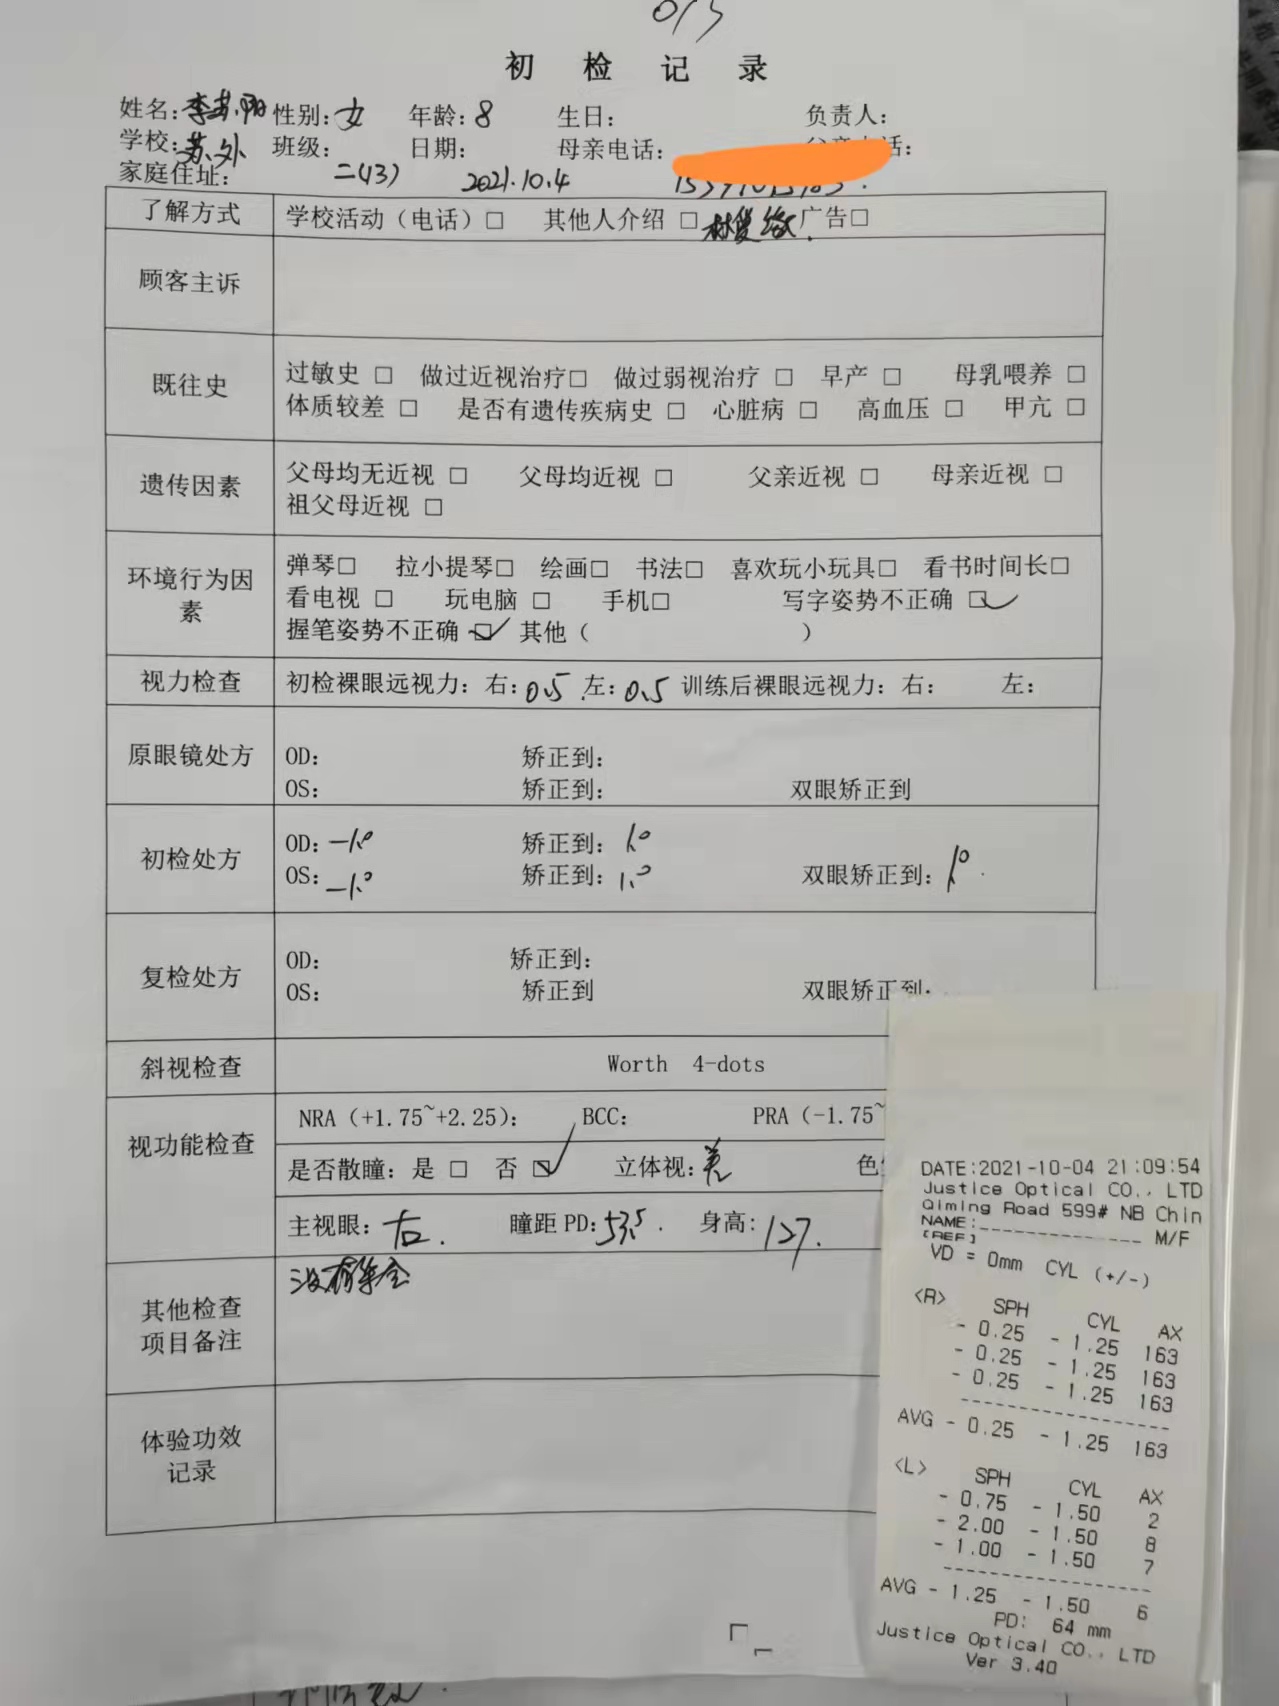 初 检 记 录
姓名: 性别:女 年龄:8 生日: 负责人:
学校:苏外 班级: 日期: 母亲电话: 话:
家庭住址: 二(13) 2021.10.4
了解方式 学校活动(电话)□ 其他人介绍 □ 广告□
顾客主诉
既往史 过敏史 □ 做过近视治疗□ 做过弱视治疗 □ 早产 □ 母乳喂养 □
体质较差 □ 是否有遗传疾病史 □ 心脏病 □ 高血压 □ 甲亢 □
遗传因素 父母均无近视 □ 父母均近视 □ 父亲近视 □ 母亲近视 □
祖父母近视 □
环境行为因素 弹琴□ 拉小提琴□ 绘画□ 书法□ 喜欢玩小玩具□ 看书时间长□
看电视 □ 玩电脑 □ 手机□ 写字姿势不正确 ☑
握笔姿势不正确 ☑ 其他( )
视力检查 初检裸眼远视力:右:0.5 左:0.5 训练后裸眼远视力:右: 左:
原眼镜处方 OD: 矫正到:
OS: 矫正到: 双眼矫正到
初检处方 OD:-1.0 矫正到:1.0
OS:-1.0 矫正到:1.0 双眼矫正到:1.0
复检处方 OD: 矫正到:
OS: 矫正到 双眼矫正到:
斜视检查 Worth 4-dots
视功能检查 NRA(+1.75~+2.25): BCC: PRA(-1.75~
是否散瞳:是 □ 否 ☑ 立体视:差 色
主视眼:右. 瞳距 PD:53.5. 身高:127.
其他检查项目备注 没有集合
体验功效记录
DATE:2021-10-04 21:09:54
Justice Optical CO., LTD
Qiming Road 599# NB Chin
NAME:______________ M/F
[REF]
VD = 0mm CYL (+/-)
<R> SPH CYL AX
- 0.25 - 1.25 163
- 0.25 - 1.25 163
- 0.25 - 1.25 163
AVG - 0.25 - 1.25 163
<L> SPH CYL AX
- 0.75 - 1.50 2
- 2.00 - 1.50 8
- 1.00 - 1.50 7
AVG - 1.25 - 1.50 6
PD: 64 mm
Justice Optical CO., LTD
Ver 3.40